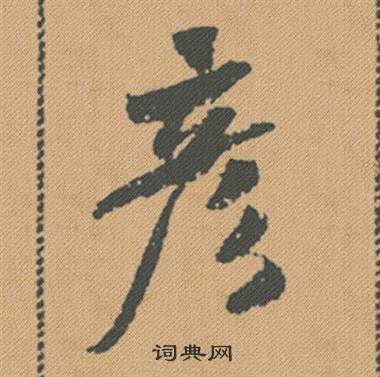 彦
词典网